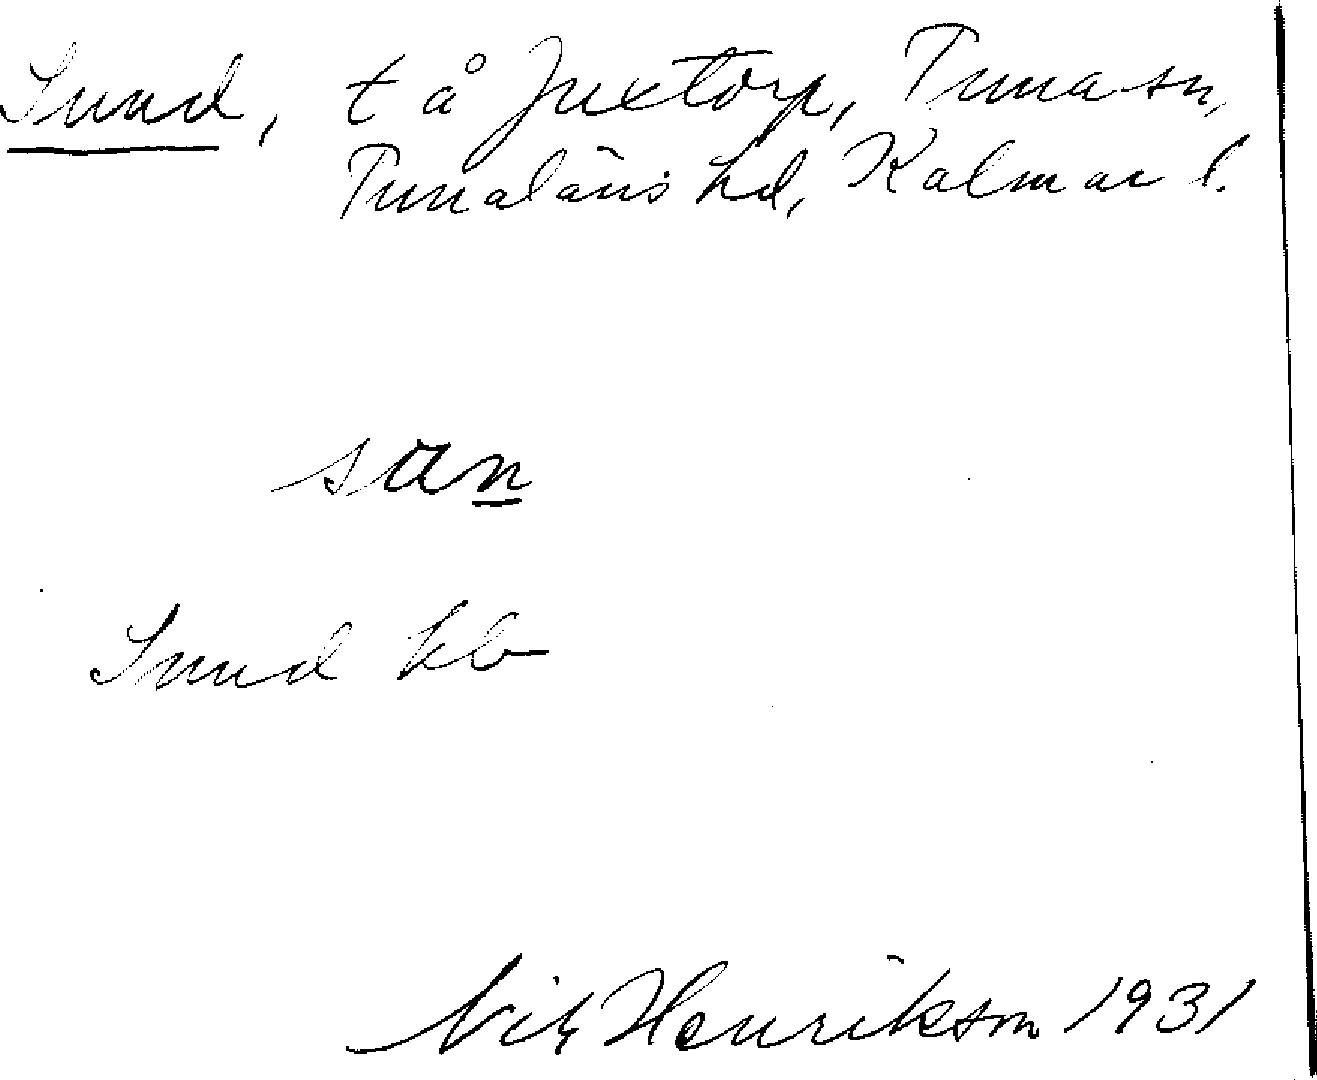 Sund, t å Juxtorp, Tuna sn,
Tunaläns hd, Kalmar l.
san
Sund kb
Nils Henrikson 1931